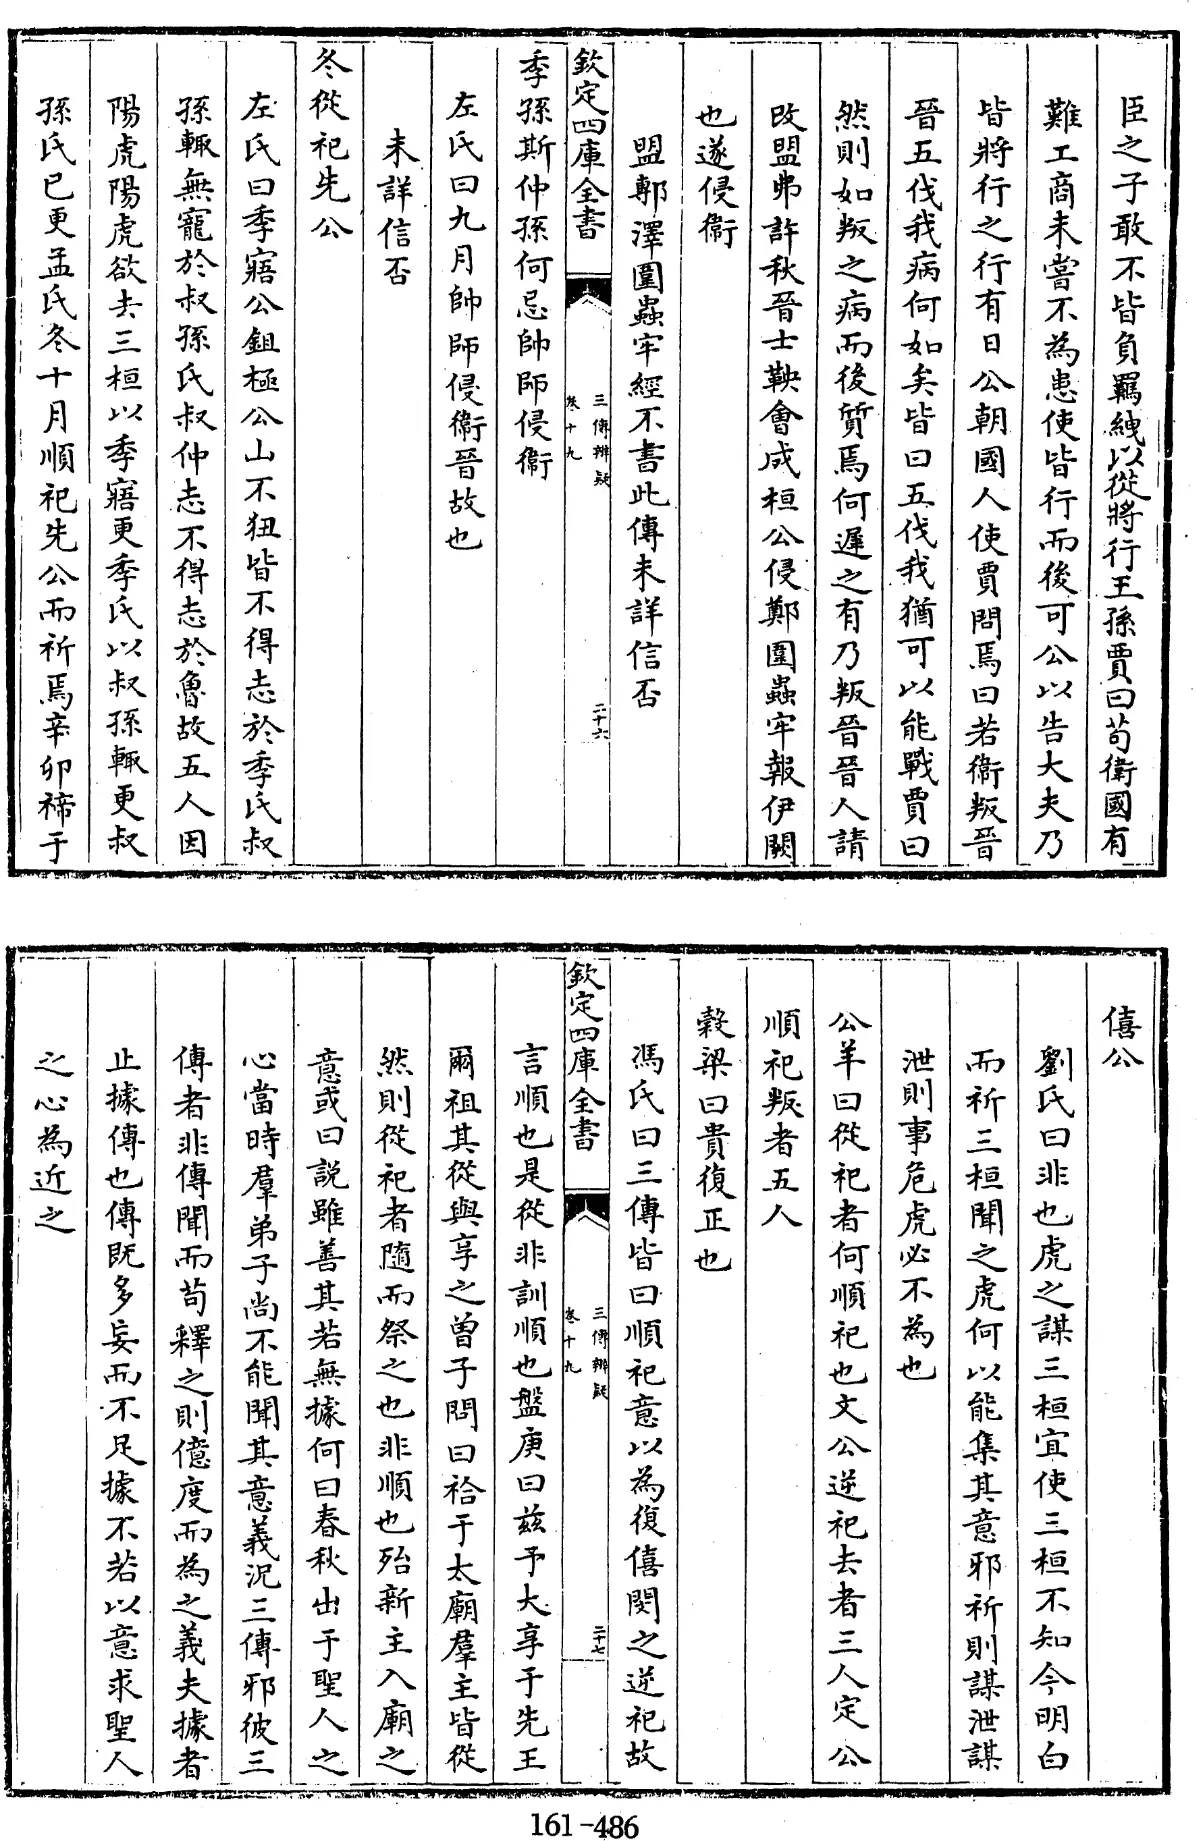 臣之子敢不皆負羈絏以從將行王孫賈曰苟衛國有
難工商未嘗不為患使皆行而後可公以告大夫乃
皆將行之行有日公朝國人使賈問焉曰若衛叛晉
晉五伐我病何如矣皆曰五伐我猶可以能戰賈曰
然則如叛之病而後質焉何遲之有乃叛晉晉人請
改盟弗許秋晉士鞅會成桓公侵鄭圍蟲牢報伊闕
也遂侵衛
盟鄟澤圍蟲牢經不書此傳未詳信否
欽定四庫全書
三傳辨疑
卷十九
二十六
季孫斯仲孫何忌帥師侵衛
左氏曰九月帥師侵衛晉故也
未詳信否
冬從祀先公
左氏曰季寤公鉏極公山不狃皆不得志於季氏叔
孫輒無寵於叔孫氏叔仲志不得志於魯故五人因
陽虎陽虎欲去三桓以季寤更季氏以叔孫輒更叔
孫氏已更孟氏冬十月順祀先公而祈焉辛卯禘于
僖公
劉氏曰非也虎之謀三桓宜使三桓不知今明白
而祈三桓聞之虎何以能集其意邪祈則謀泄謀
泄則事危虎必不為也
公羊曰從祀者何順祀也文公逆祀去者三人定公
順祀叛者五人
穀梁曰貴復正也
馮氏曰三傳皆曰順祀意以為復僖閔之逆祀故
欽定四庫全書
三傳辨疑
卷十九
二十七
言順也是從非訓順也盤庚曰茲予大享于先王
爾祖其從與享之曽子問曰祫于太廟羣主皆從
然則從祀者隨而祭之也非順也殆新主入廟之
意或曰說雖善其若無據何曰春秋出于聖人之
心當時羣弟子尚不能聞其意義況三傳邪彼三
傳者非傳聞而苟釋之則億度而為之義夫據者
止據傳也傳既多妄而不足據不若以意求聖人
之心為近之
161-486